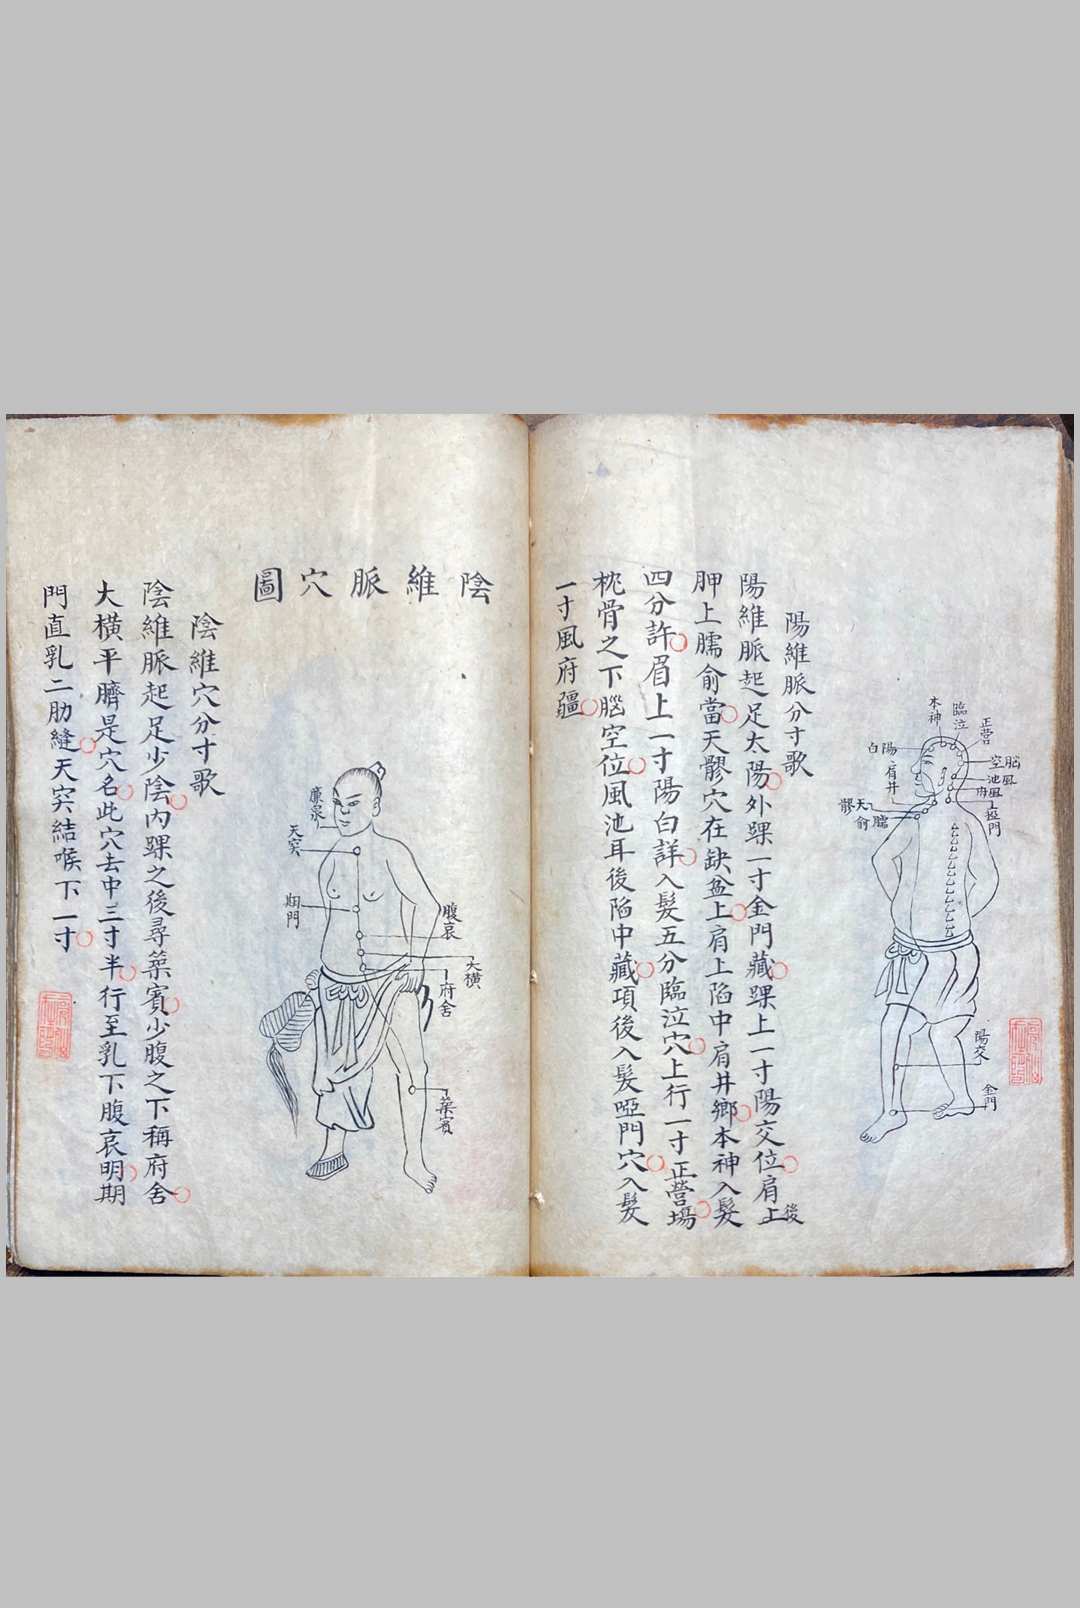 陽維脈分寸歌
陽維脈起足太陽外踝一寸金門藏踝上一寸陽交位肩上後
胛上臑俞當天髎穴在缺盆上肩上陷中肩井鄉本神入髮
四分許眉上一寸陽白詳入髮五分臨泣穴上行一寸正營場
枕骨之下腦空位風池耳後陷中藏項後入髮啞門穴入髮
一寸風府疆
本神
臨泣
正營
陽白
肩井
腦空
風池
風府
瘂門
天髎
臑俞
陽交
金門
陰維脈穴圖
陰維穴分寸歌
陰維脈起足少陰內踝之後尋築賓少腹之下稱府舍
大橫平臍是穴名此穴去中三寸半行至乳下腹哀明期
門直乳二肋縫天突結喉下一寸
廉泉
天突
期門
腹哀
大橫
府舍
築賓